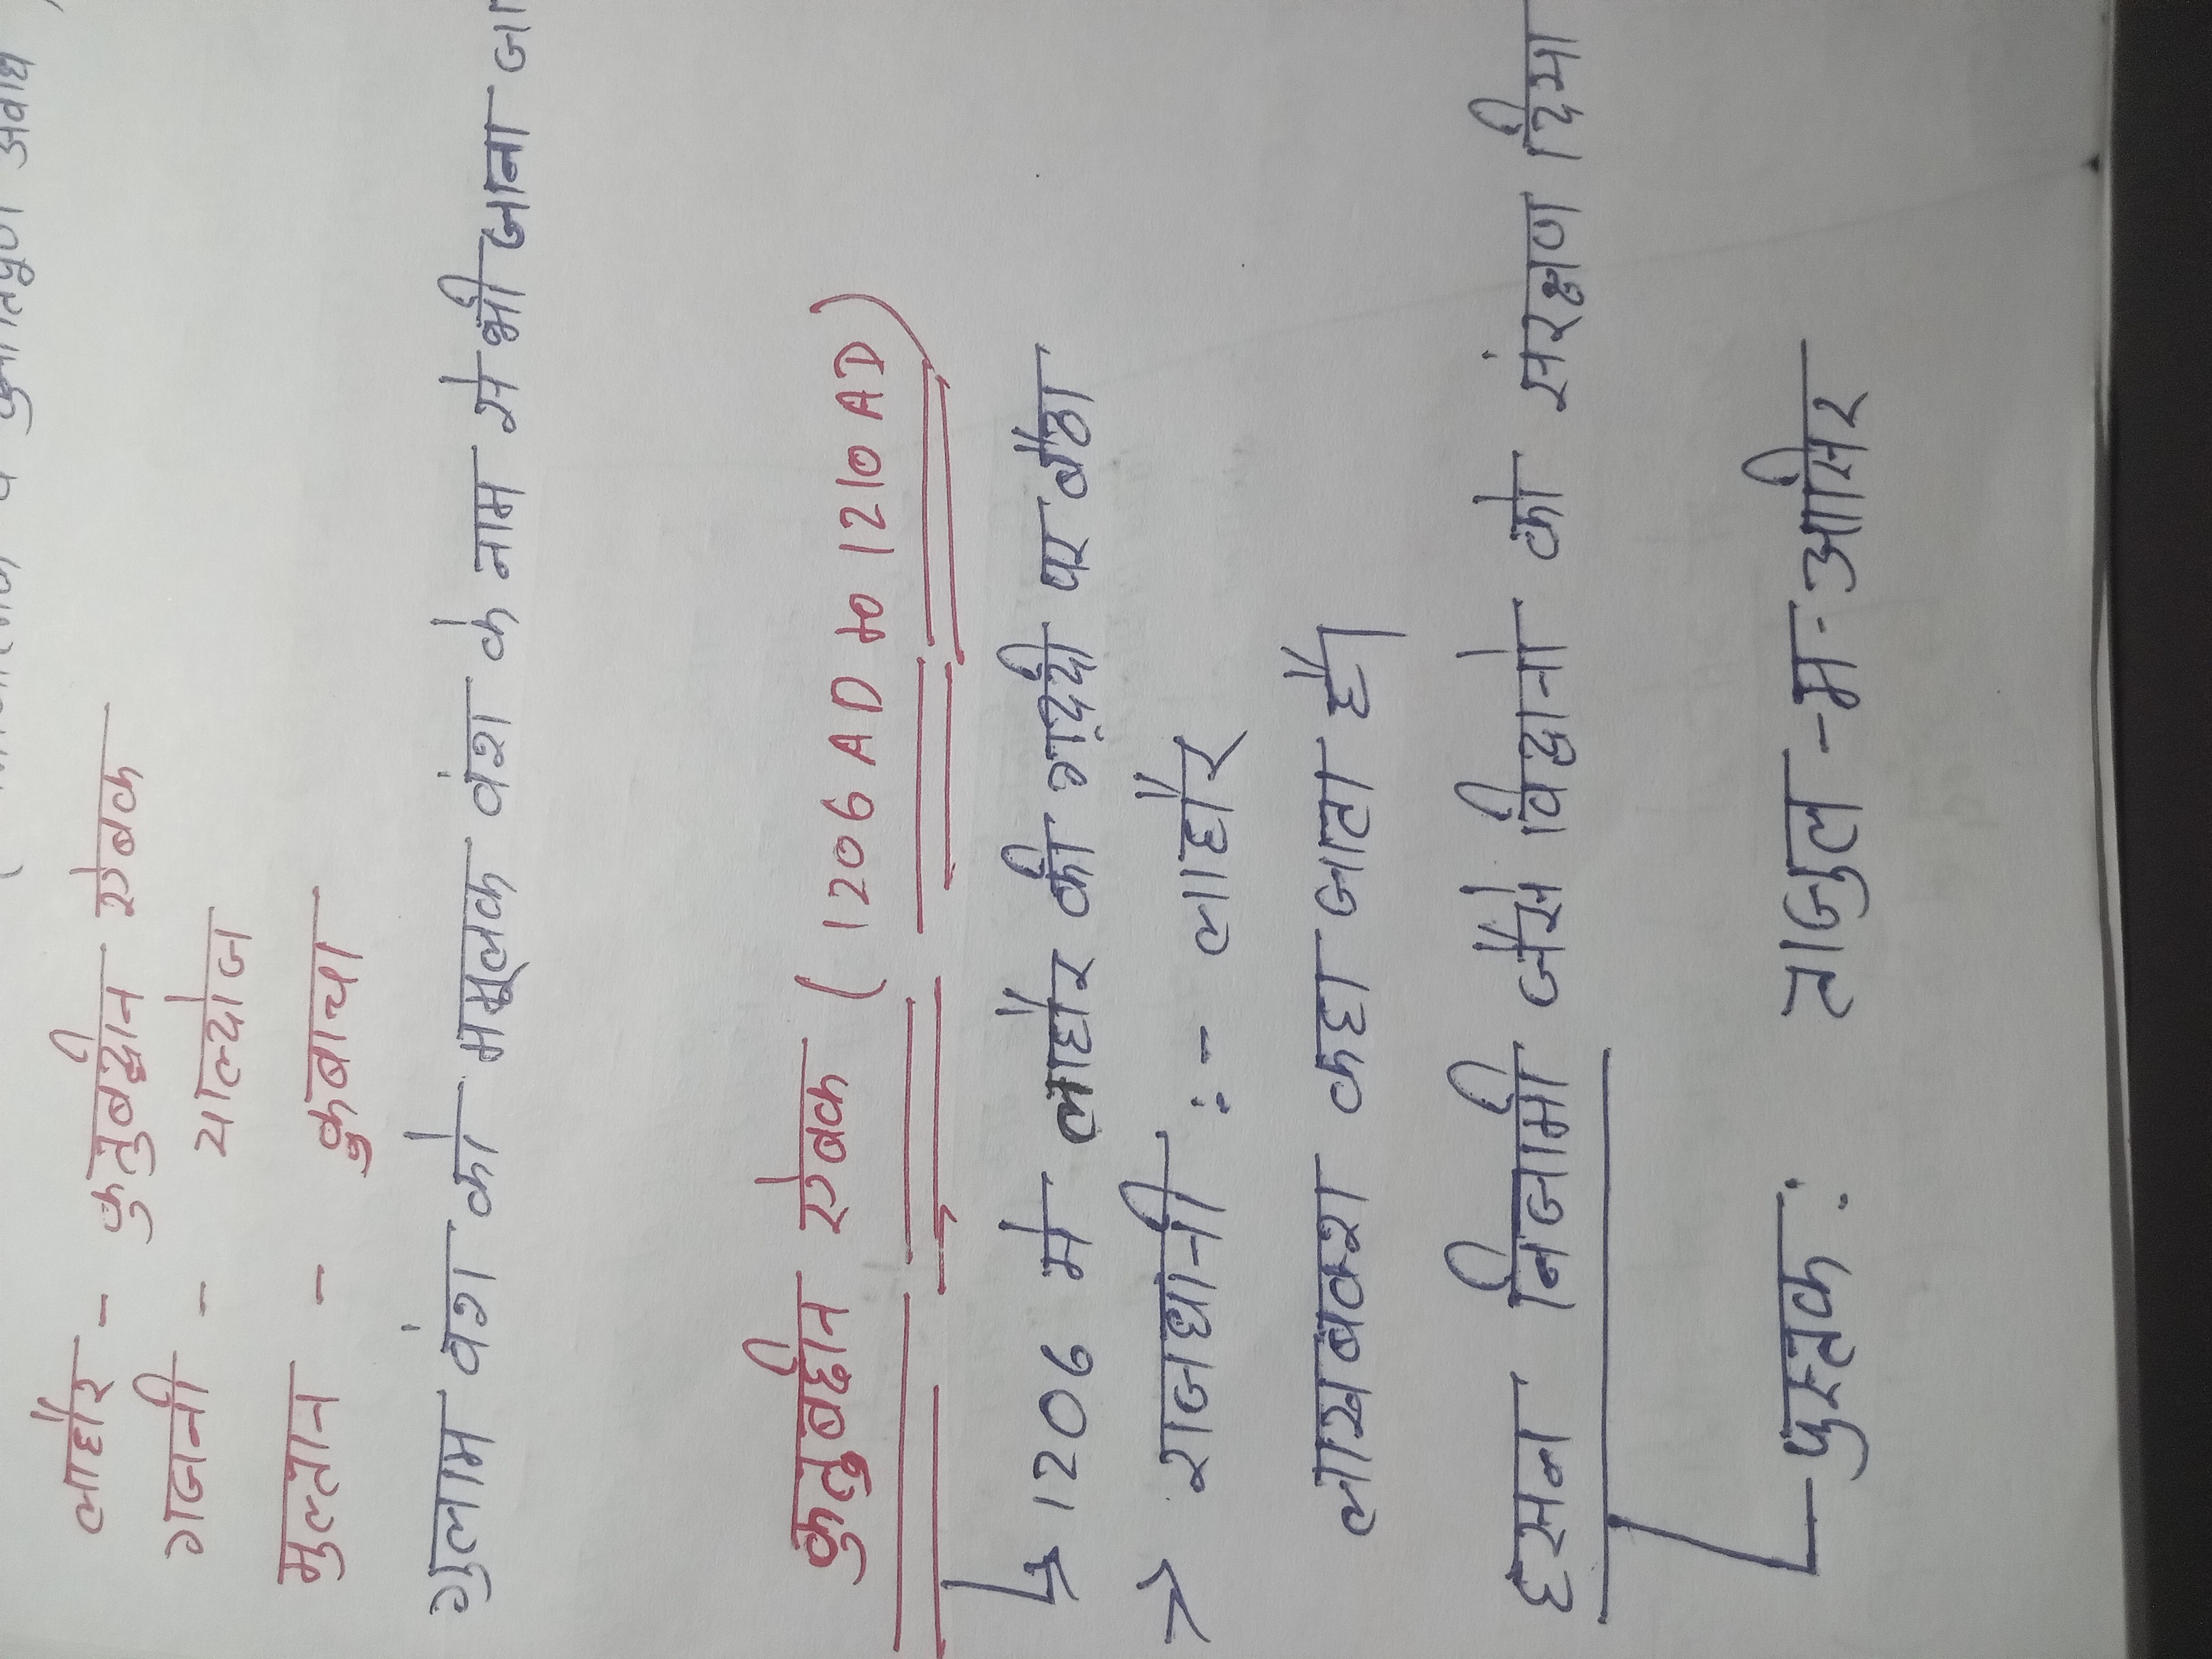 लाहौर - कुतुबुद्दीन एबक
गजनी - याल्योज
मुल्तान - कुबाचा
गुलाम वंश को ममूलक वंश के नाम से भी जाना
कुतुबुद्दीन एबक (1206 AD to 1210 AD)
↳ 1206 मे लाहौर की गद्दी पर बैठा
→ राजधानी :- लाहौर
लाखबक्श कहा जाता है।
हसन निजामी जैसे विद्वानो को संरक्षण दिया
पुस्तक : ताजुल - म - आसिर